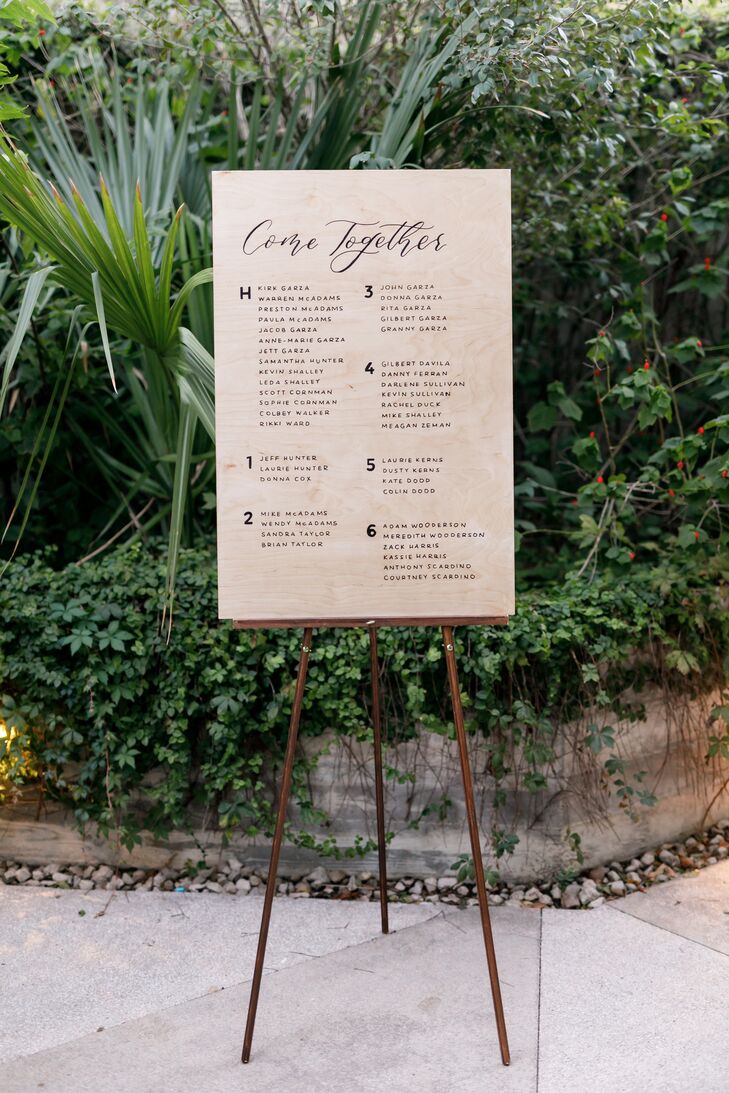 Come Together
H KIRK GARZA
WARREN McADAMS
PRESTON McADAMS
PAULA McADAMS
JACOB GARZA
ANNE-MARIE GARZA
JETT GARZA
SAMANTHA HUNTER
KEVIN SHALLEY
LEDA SHALLEY
SCOTT CORNMAN
SOPHIE CORNMAN
COLBEY WALKER
RIKKI WARD
1 JEFF HUNTER
LAURIE HUNTER
DONNA COX
2 MIKE McADAMS
WENDY McADAMS
SANDRA TAYLOR
BRIAN TAYLOR
3 JOHN GARZA
DONNA GARZA
RITA GARZA
GILBERT GARZA
GRANNY GARZA
4 GILBERT DAVILA
DANNY FERRAN
DARLENE SULLIVAN
KEVIN SULLIVAN
RACHEL DUCK
MIKE SHALLEY
MEAGAN ZEMAN
5 LAURIE KERNS
DUSTY KERNS
KATE DODD
COLIN DODD
6 ADAM WOODERSON
MEREDITH WOODERSON
ZACK HARRIS
KASSIE HARRIS
ANTHONY SCARDINO
COURTNEY SCARDINO